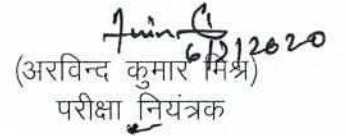 6/2/2020
(अरविन्द कुमार मिश्र)
परीक्षा नियंत्रक